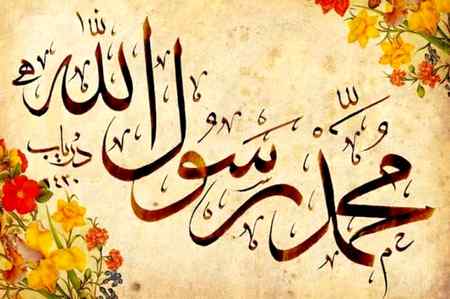 مُحَمَّدْ رَسُولُ اللّٰه
درياب
١٤٣٠